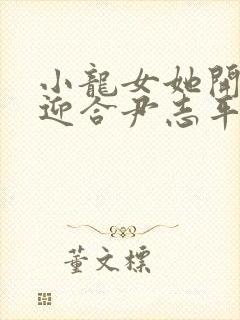 小龍女她開
迎合尹志平
董文標